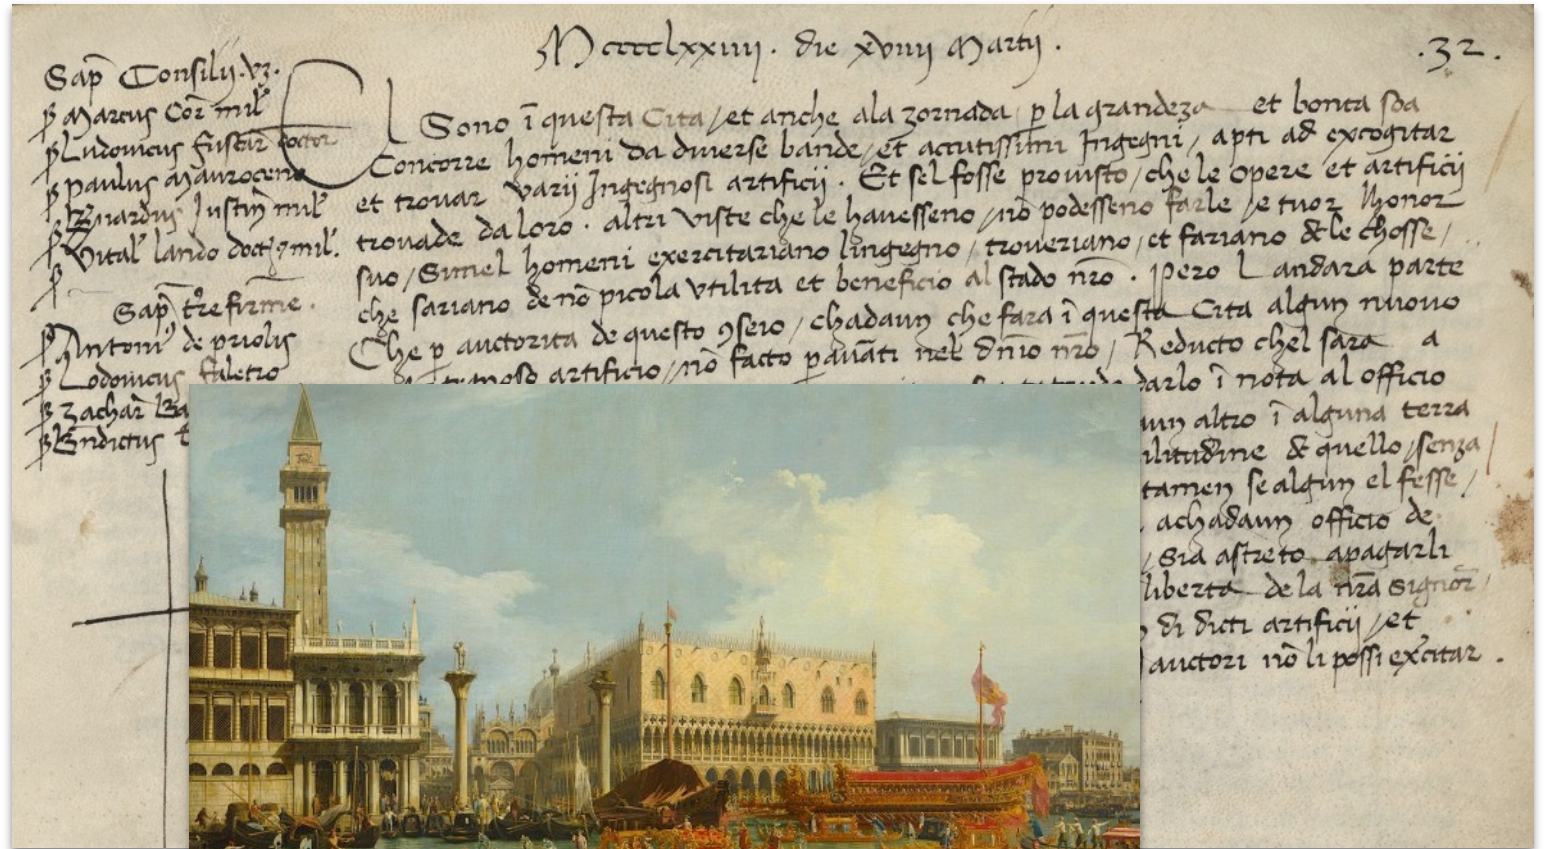 Mcccclxxiiij. die xviiij Martij.
.32.
Sap̄ Consilij. vz.
Marcus Cor̄ mil
Ludovicus fuscar̄ doctor
paulus Mauroceno
Vital lando doct
Sap̄ tr̄e firme.
Antoni de priolis
Lodovicus faletro
zachar̄
El Sono ī questa Cita / et anche ala zornada p la grandeza et bonta soa
Concorre homeni da diverse bande / et accutissimi Ingegni, apti ad excogitar
et trovar varij Ingegnosi artificij. Et sel fosse provisto / che le opere et artificij
trovade da loro. altri viste che le havesseno / nō podesseno farle / e tuor honor
suo / Simel homeni exercitariano lingegno / troveriano / et fariano de le chosse /
che sariano de nō picola utilita et beneficio al stado nr̄o. Pero Landara parte
Che p auctorita de questo 9seio / chadaun che fara ī questa Cita algun nuovo
artificio / nō facto p avāti nel dn̄io nr̄o / Reducto chel sara a
darlo ī nota al officio
altro ī alguna terra
de quello / senza
tamen se algun el fesse /
achadaun officio de
/ Sia astreto apagarli
liberta de la nr̄a Signor̄
di dicti artificij / et
auctori nō li possi exercitar.